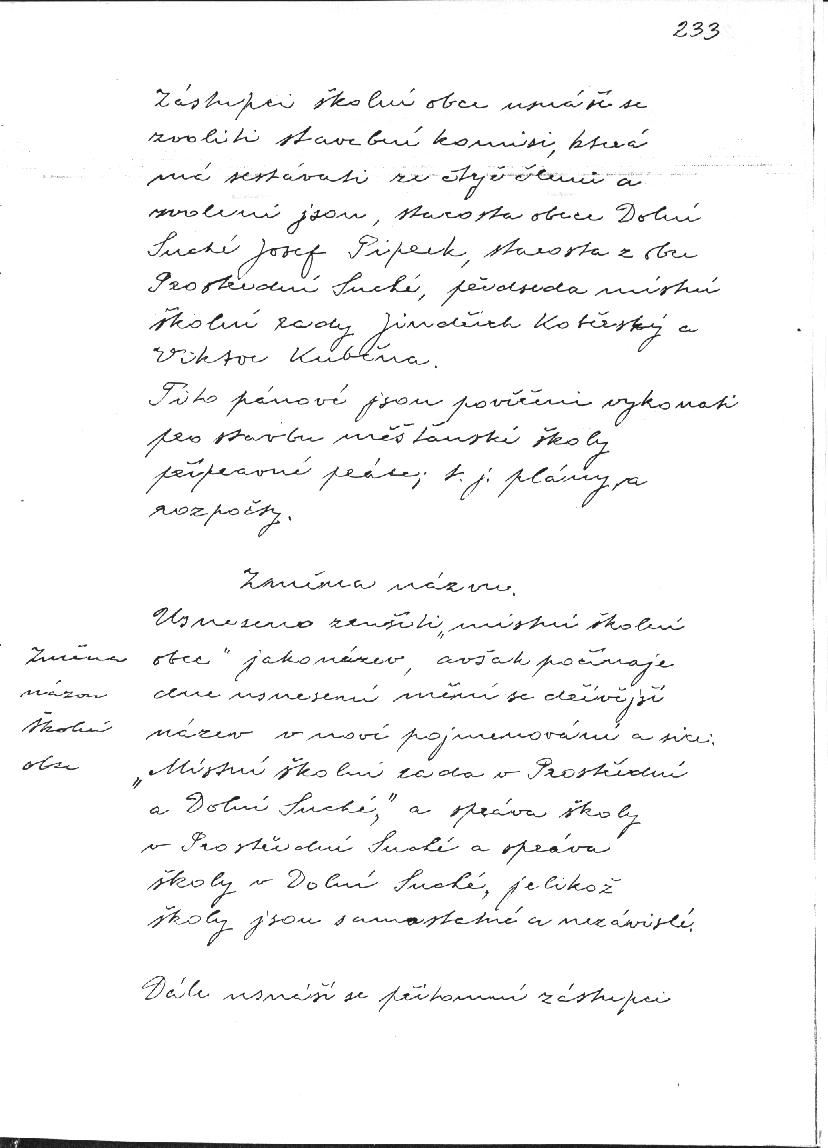 233
Zástupci školní obce usnáší se
zvoliti stavební komisi, která
má sestávati ze čtyř členů a
zvoleni jsou, starosta obce Dolní
Suché Josef Piprek, starosta z obce
Prostřední Suché, předseda místní
školní rady Jindřich Kotěrský a
Viktor Kuběna.
Tito pánové jsou pověřeni vykonati
pro stavbu měšťanské školy
přípravné práce; t. j. plány, a
rozpočty.
Změna názvu.
Usneseno zrušiti „místní školní
obce" jako název, avšak počínaje
dne usnesení mění se dřívější
název v nové pojmenování a sice:
„Místní školní rada v Prostřední
a Dolní Suché," a správa školy
v Prostřední Suché a správa
školy v Dolní Suché, jelikož
školy jsou samostatné a nezávislé.
Změna
názvu
školní
obce
Dále usnáší se přítomní zástupci